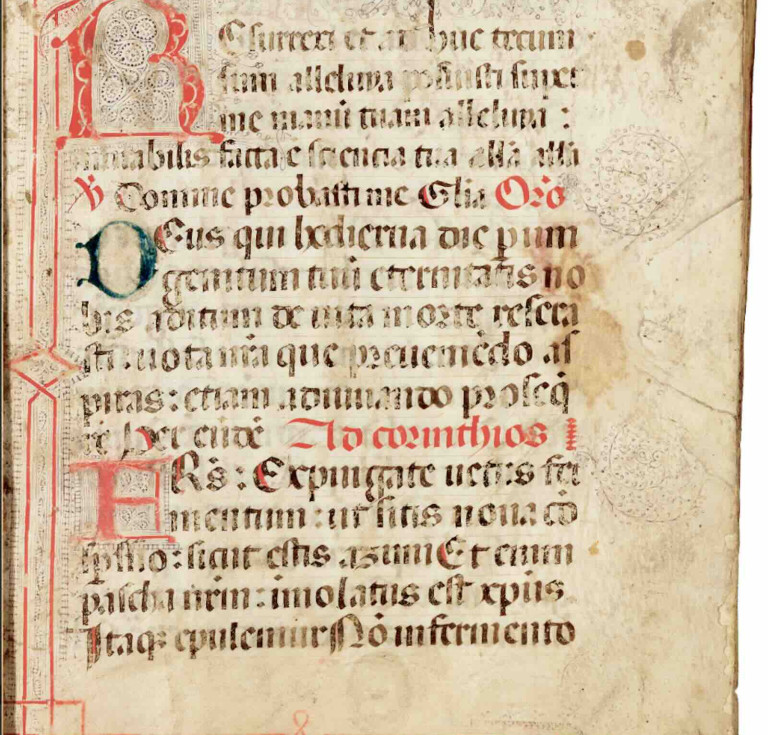 REsurrexi et ad huc tecum
sum alleluya posuisti super
me manū tuam alleluya :
mirabilis facta ē sciencia tua allā allā
℣ Domine probasti me Glīa Orō
DEus qui hodierna die p unī
genitum tuū eternitatis no
bis aditum devicta morte resera
sti : vota nr̄a que preveniēdo as
piras : etiam adiuvando proseq̄
re Per eundē Ad corinthios
FRs̄ : Expurgate vetus fer
mentum : ut sitis nova cō
spersio : sicut estis azimi Et enim
pascha nrm̄ : imolatus est xpūs
Itaq; epulemur Nō in fermento